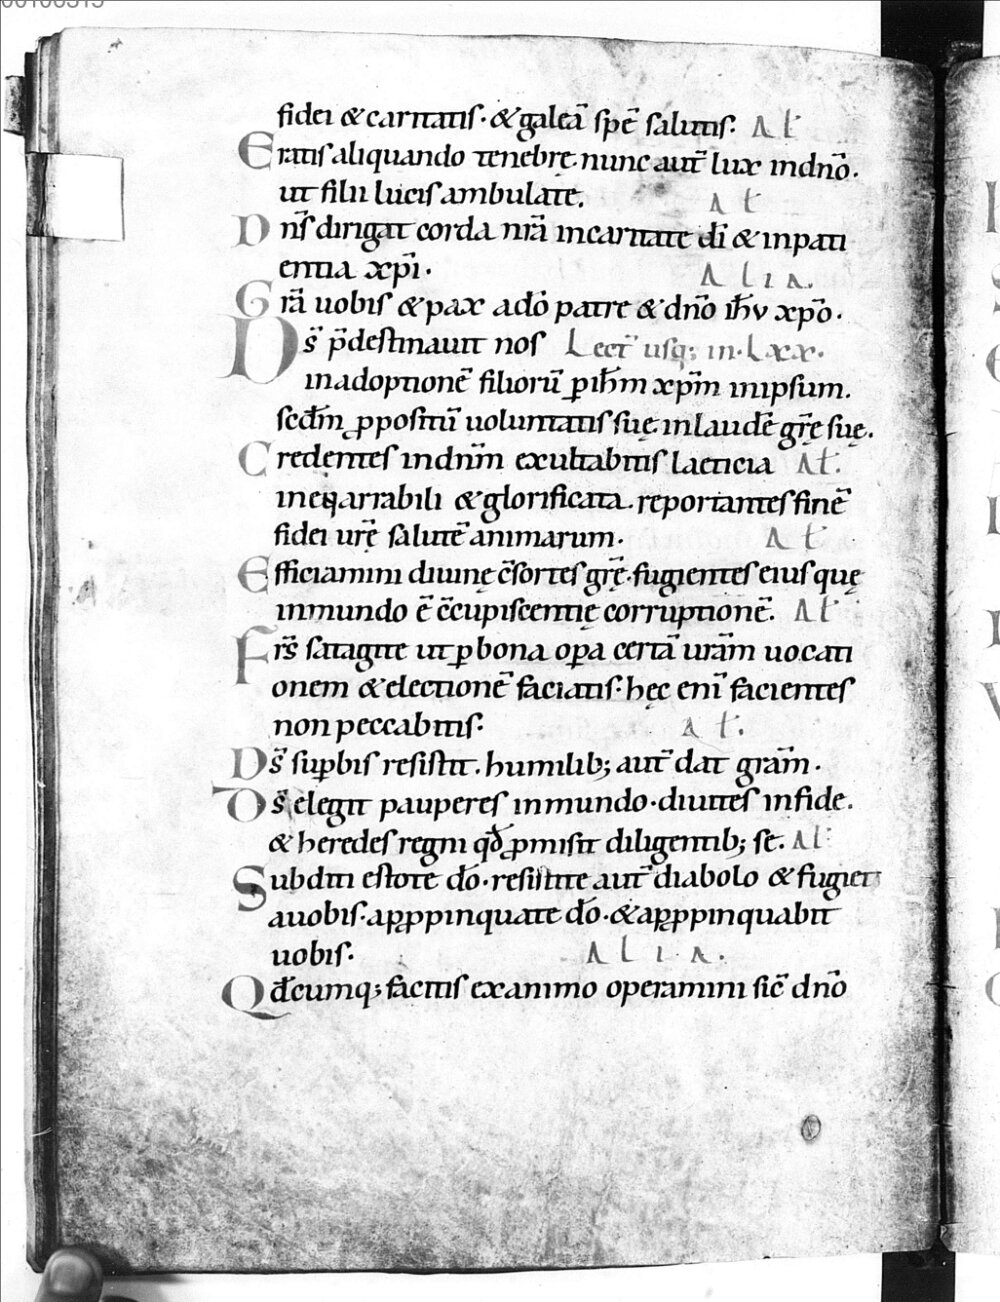 fidei & caritatis· & galeā spē salutis· Al̄
Eratis aliquando tenebrę· nunc aut̄ lux in dn̄o·
ut filii lucis ambulate. Al̄
Dn̄s dirigat corda nr̄a in caritate dī & in pati
entia xp̄i· Alia.
Gr̄a uobis & pax a do͞ patre & dn̄o ih̄v xp̄o·
Ds̄ p̄destinauit nos Lect̄ usq; in·Lxx·
in adoptionē filiorū ꝑ ih̄m xp̄m in ipsum.
scđm ꝓpositū uoluntatis suę· in laudē gr̄ę suę.
Credentes in dn̄m exultabitis laeticia Al̄·
inenarrabili & glorificata· reportantes finē
fidei ur̄ę salutē animarum· Al̄
Efficiamini diuinę c̄sortes gr̄ę· fugientes eius quę
in mundo ē c̄cupiscentię corruptionē· Al̄
Fr̄s satagite ut ꝑ bona oꝑa certā ur̄am uocati
onem & electionē faciatis· hęc enī facientes
non peccabitis· Al̄.
Ds̄ suꝑbis resistit. humilib; aut̄ dat gr̄am·
Ds̄ elegit pauperes in mundo· diuites in fide.
& heredes regni qđ ꝓmisit diligentib; se· Al̄
Subditi estote do͞· resistite aut̄ diabolo & fugiet
a uobis· apꝓpinquate do͞· & apꝓpinquabit
uobis· Alia.
Qđcumq; facitis ex animo operamini sic̄ dn̄o